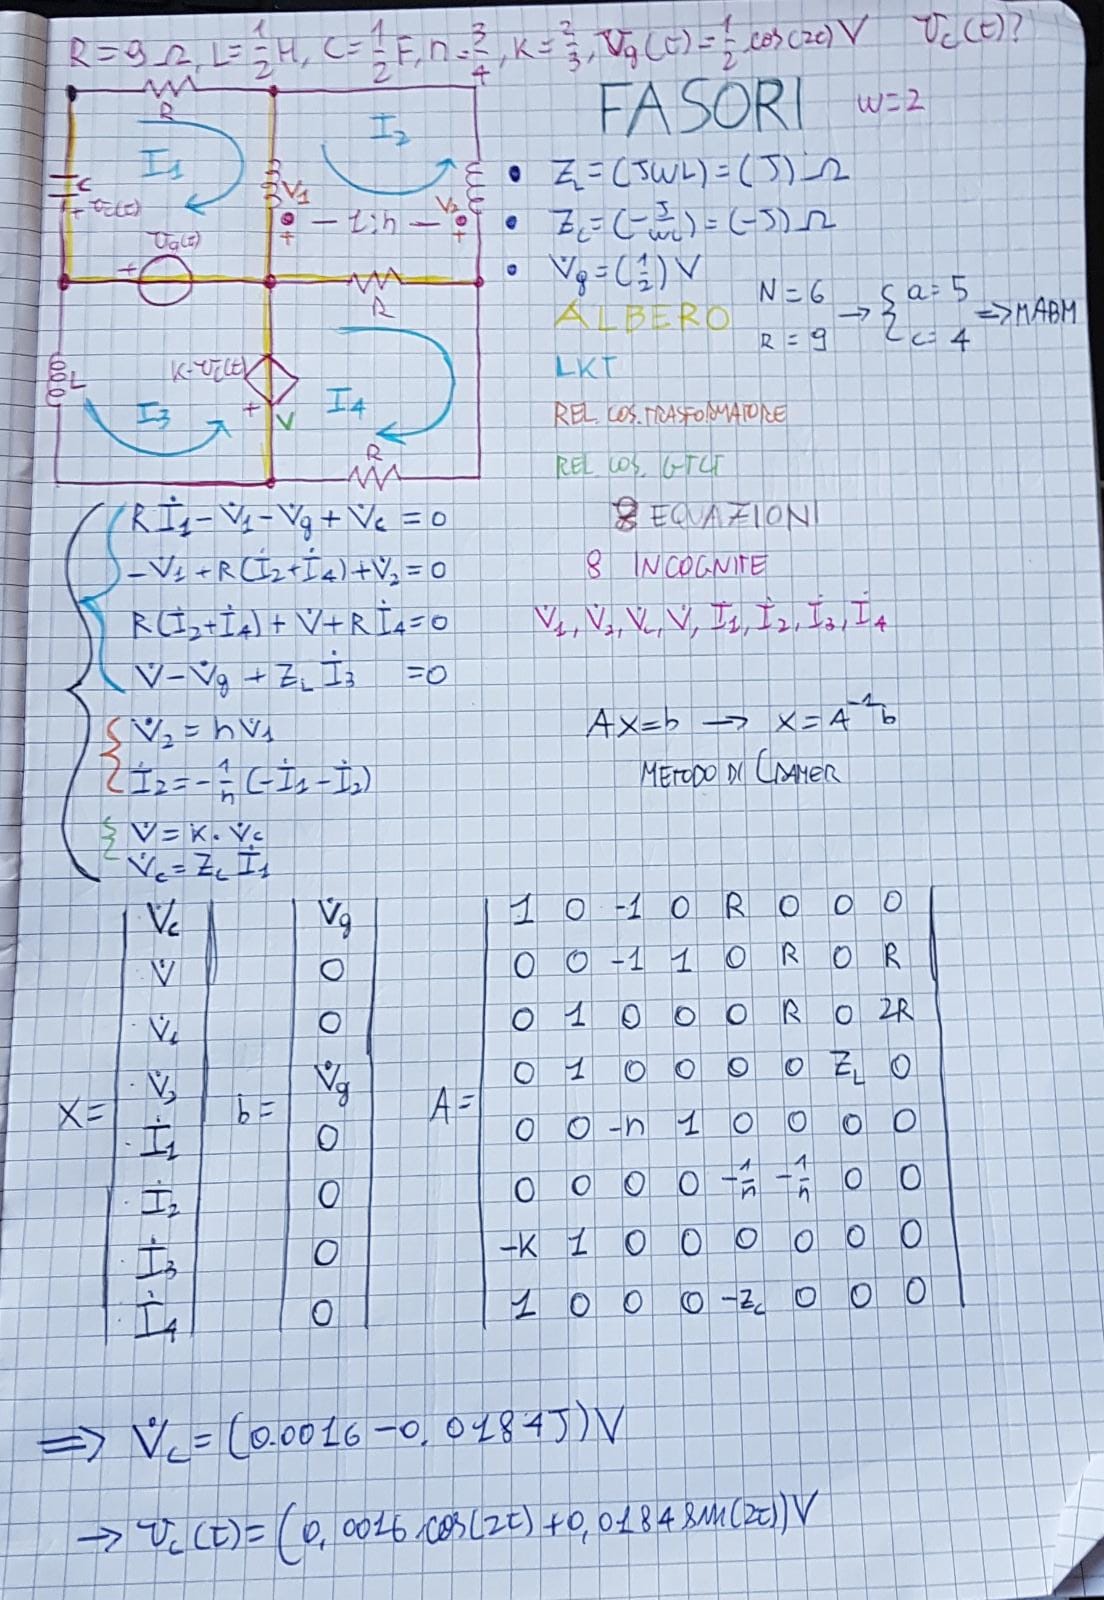 R=9Ω, L=1/2 H, C=1/2 F, n=3/4, K=2/3, Vg(t)=1/2 cos(2t) V Vc(t)?
FASORI w=2
R
I1
I2
C
+ vc(t)
V1
V2
+ - 1:n - +
vg(t)
+
R
L
K·vc(t)
+ V
I3
I4
R
• ZL=(JWL)=(J)Ω
• Zc=(-J/wc)=(-J)Ω
• V̇g=(1/2)V
ALBERO
N=6
R=9
→ { a=5
c=4
=> MABM
LKT
REL. COS. TRASFORMATORE
REL COS. GTCT
8 EQUAZIONI
8 INCOGNITE
V̇1, V̇2, V̇c, V̇, İ1, İ2, İ3, İ4
Rİ1-V̇1-V̇g+V̇c=0
-V̇1+R(İ2+İ4)+V̇2=0
R(İ2+İ4)+V̇+Rİ4=0
V̇-V̇g+ZLİ3 =0
V̇2=nV̇1
İ2=-1/n(-İ1-İ2)
V̇=K·V̇c
V̇c=Zcİ1
Ax=b → x=A⁻¹b
METODO DI CRAMER
X=
V̇c
V̇
V̇1
V̇2
İ1
İ2
İ3
İ4
b=
V̇g
0
0
V̇g
0
0
0
0
A=
1 0 -1 0 R 0 0 0
0 0 -1 1 0 R 0 R
0 1 0 0 0 R 0 2R
0 1 0 0 0 0 ZL 0
0 0 -n 1 0 0 0 0
0 0 0 0 -1/n -1/n 0 0
-K 1 0 0 0 0 0 0
1 0 0 0 -Zc 0 0 0
=> V̇c=(0.0016-0,0184J)V
→ vc(t)=(0,0016 cos(2t)+0,0184 sin(2t))V